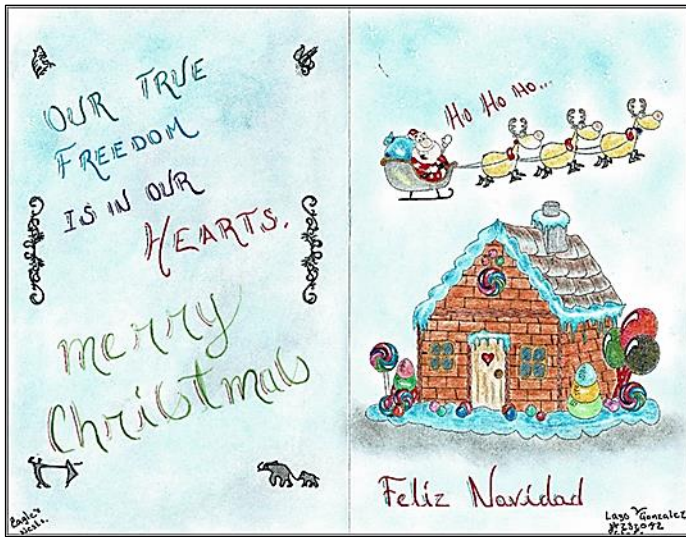 OUR TRUE
FREEDOM
IS IN OUR
HEARTS.
merry
Christmas
Eagle's
Ho Ho Ho...
Feliz Navidad
Lago Gonzalez
#232042